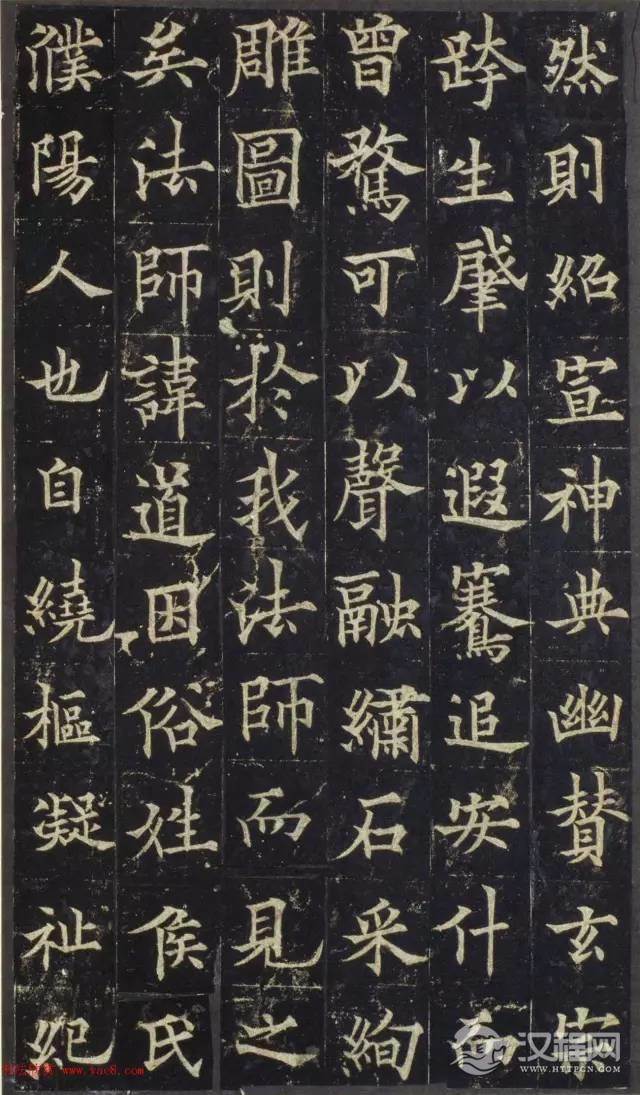 然則紹宣神典幽賛玄宗
跨生肈以遐騫追安什而
曾騖可以聲融繡石采絢
雕圖則於我法師而見之
矣法師諱道因俗姓侯氏
濮陽人也自繞樞凝祉紀
汉程网
HTTPCN.COM
www.yac8.com